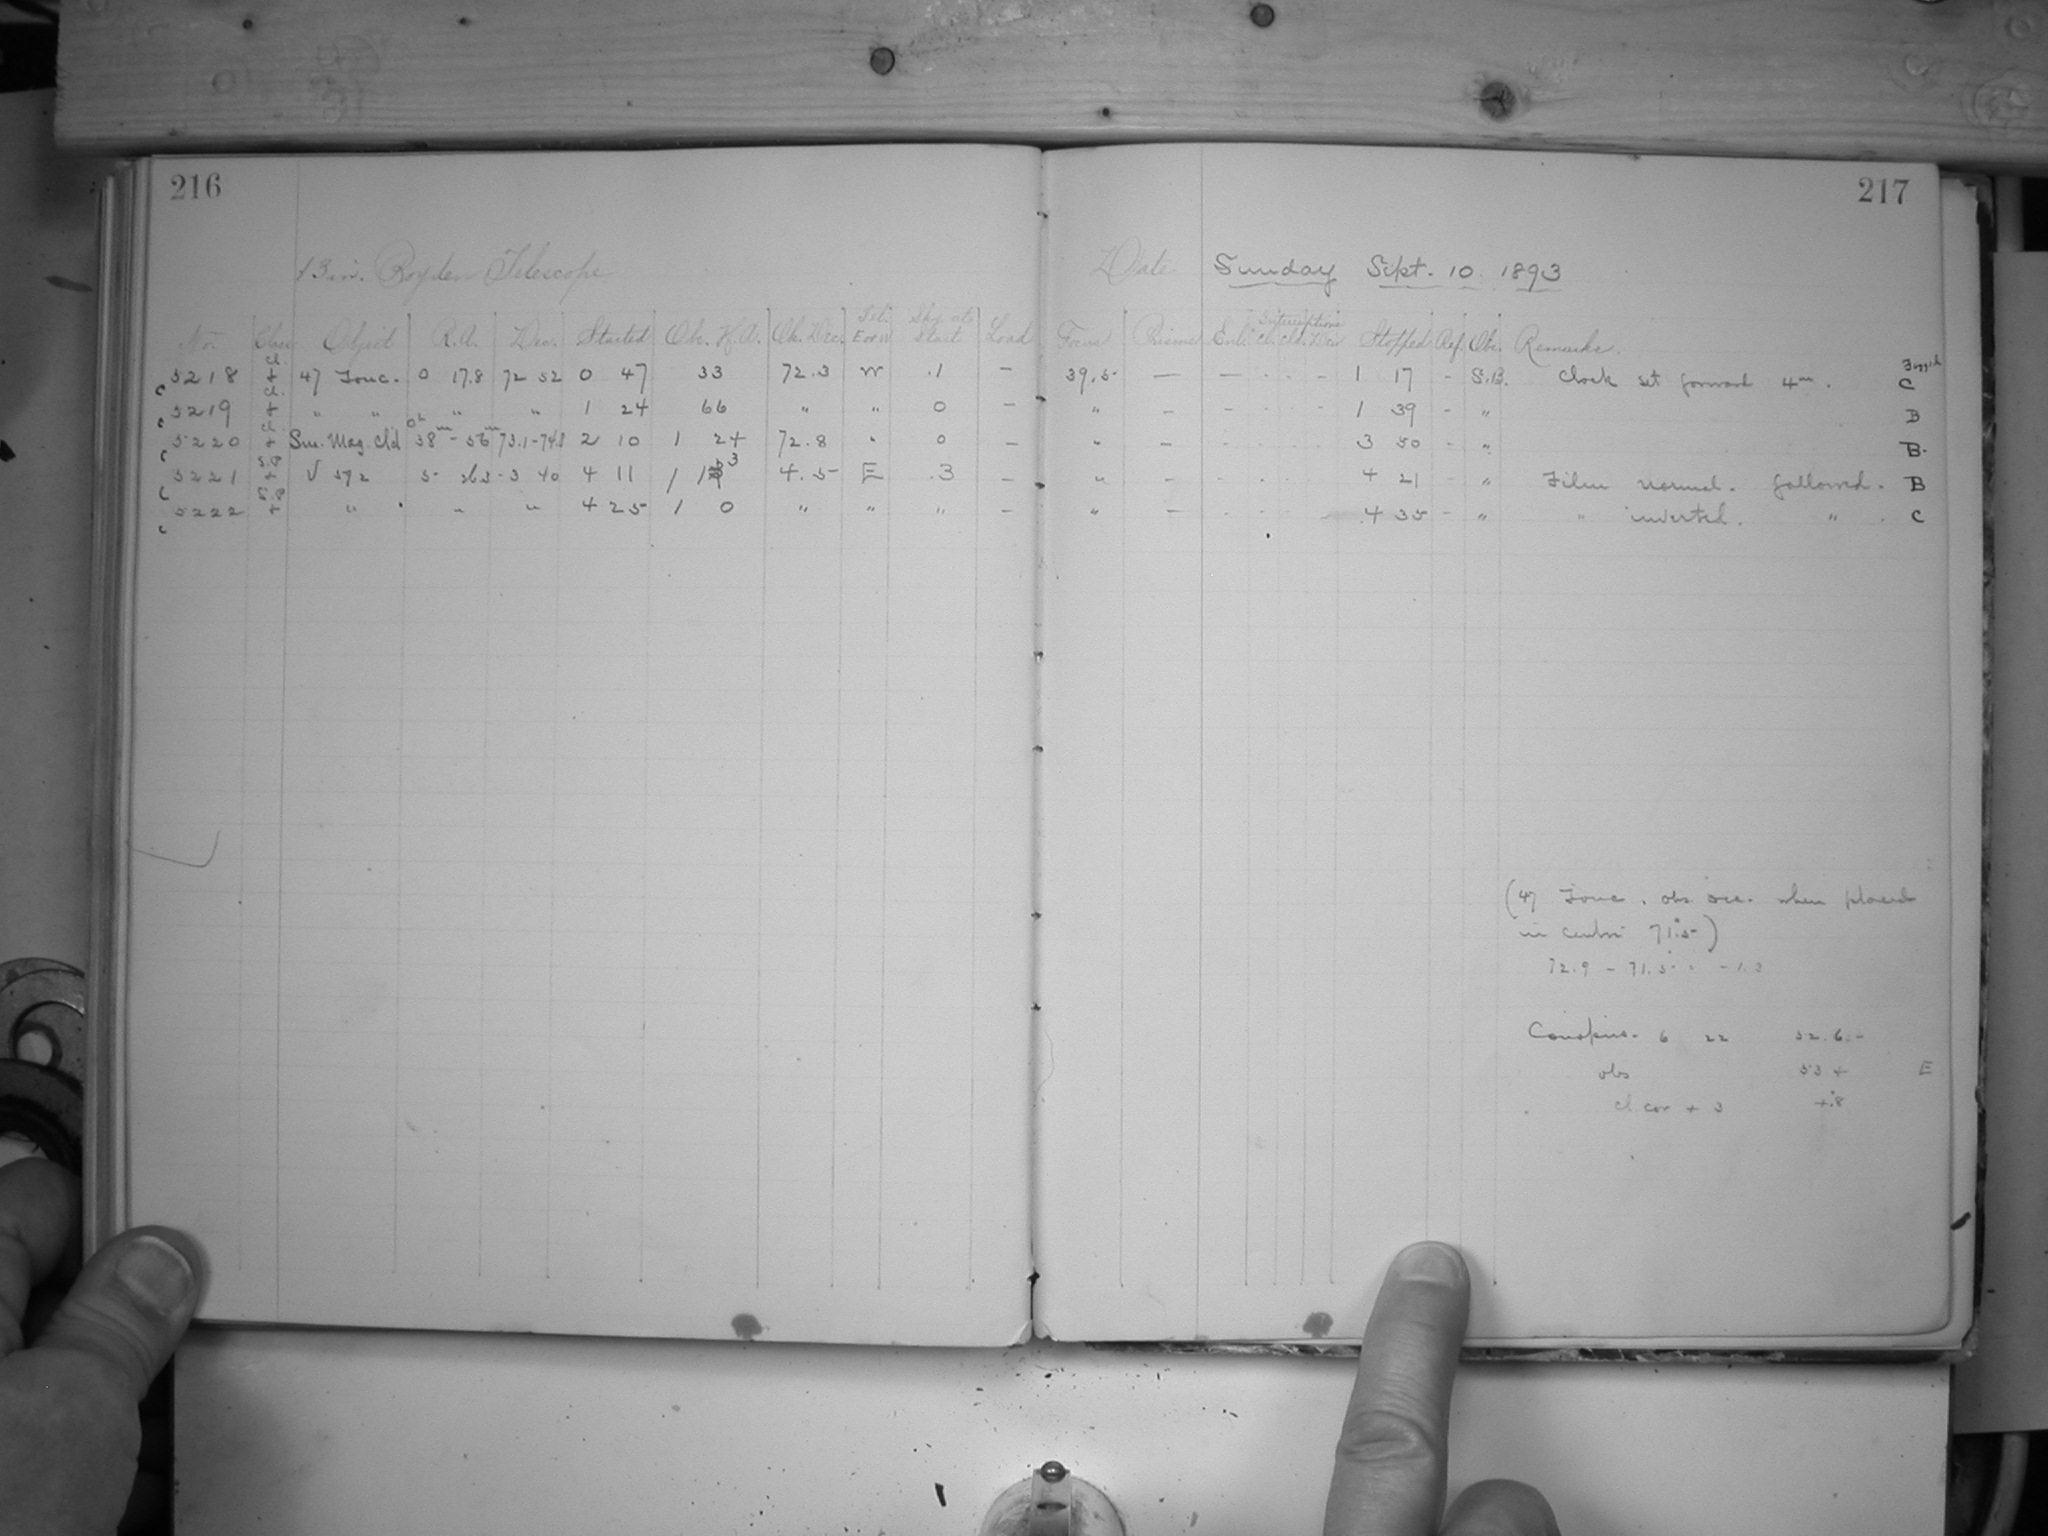 216
13 in. Boyden Telescope
No. Class Object R.A. Dec. Started Obs. H.A. Obs. Dec. Tel. E or W Sky at Start Load
5218 Cl. + 47 Touc. 0 17.8 72 52 0 47 33 72.3 W .1 —
c 5219 Cl. + " " " " 1 24 66 " " 0 —
c 5220 Cl. + Sm. Mag. Cld 0h 38m - 56m 73.1-74.8 2 10 1 24 72.8 " 0 —
c 5221 S.B + V 572 5 26.2 -3 40 4 11 1 4.5 E .3 —
c 5222 S.B + " " " 4 25 1 0 " " " —
c
217
Date Sunday Sept. 10. 1893
Focus Prisms Enl. Interruptions Cl. Cld. Dew Stopped Ref. Obs. Remarks.
39.5 — — - - - 1 17 - S.B. Clock set forward 4m. C
" - - - - - 1 39 - " B
" - - - - - 3 50 - " B.
" - - - - - 4 21 - " Film normal. followed. B
" - - - - - 4 35 - " " inverted. " . C
(47 Touc. obs. dec. when placed
in centre 71.5)
72.9 - 71.5 - 1.3
Canopus. 6 22 52.6 -
obs 53 + E
cl. cor + 3 +.8